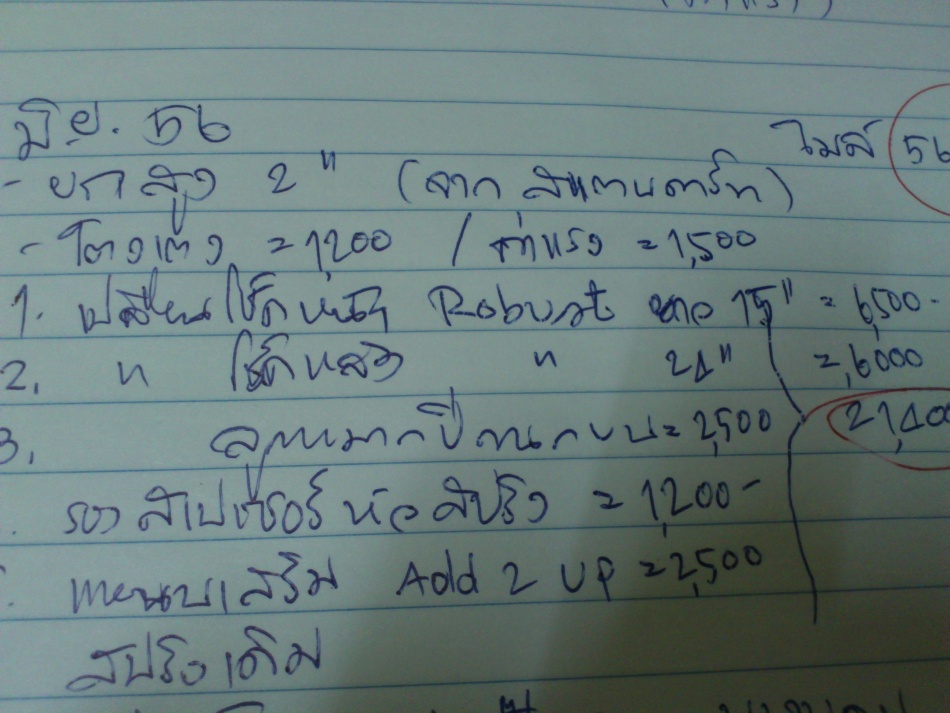 มิย. 56
ไมล์ 56
- ยกสูง 2" (จากสแตนดาร์ท)
- โตงเตง = 1,200 / ค่าแรง = 1,500
1. เปลี่ยนโช๊คหน้า Robust ยาว 15" = 6,500-
2. " โช๊คหลัง " 21" = 6,000
3. ลูกหมากปีกนกบน = 2,500
21,400
รองสเปเซอร์หัวสปริง = 1,200-
แหนบเสริม Add 2 UP = 2,500
สปริงเดิม